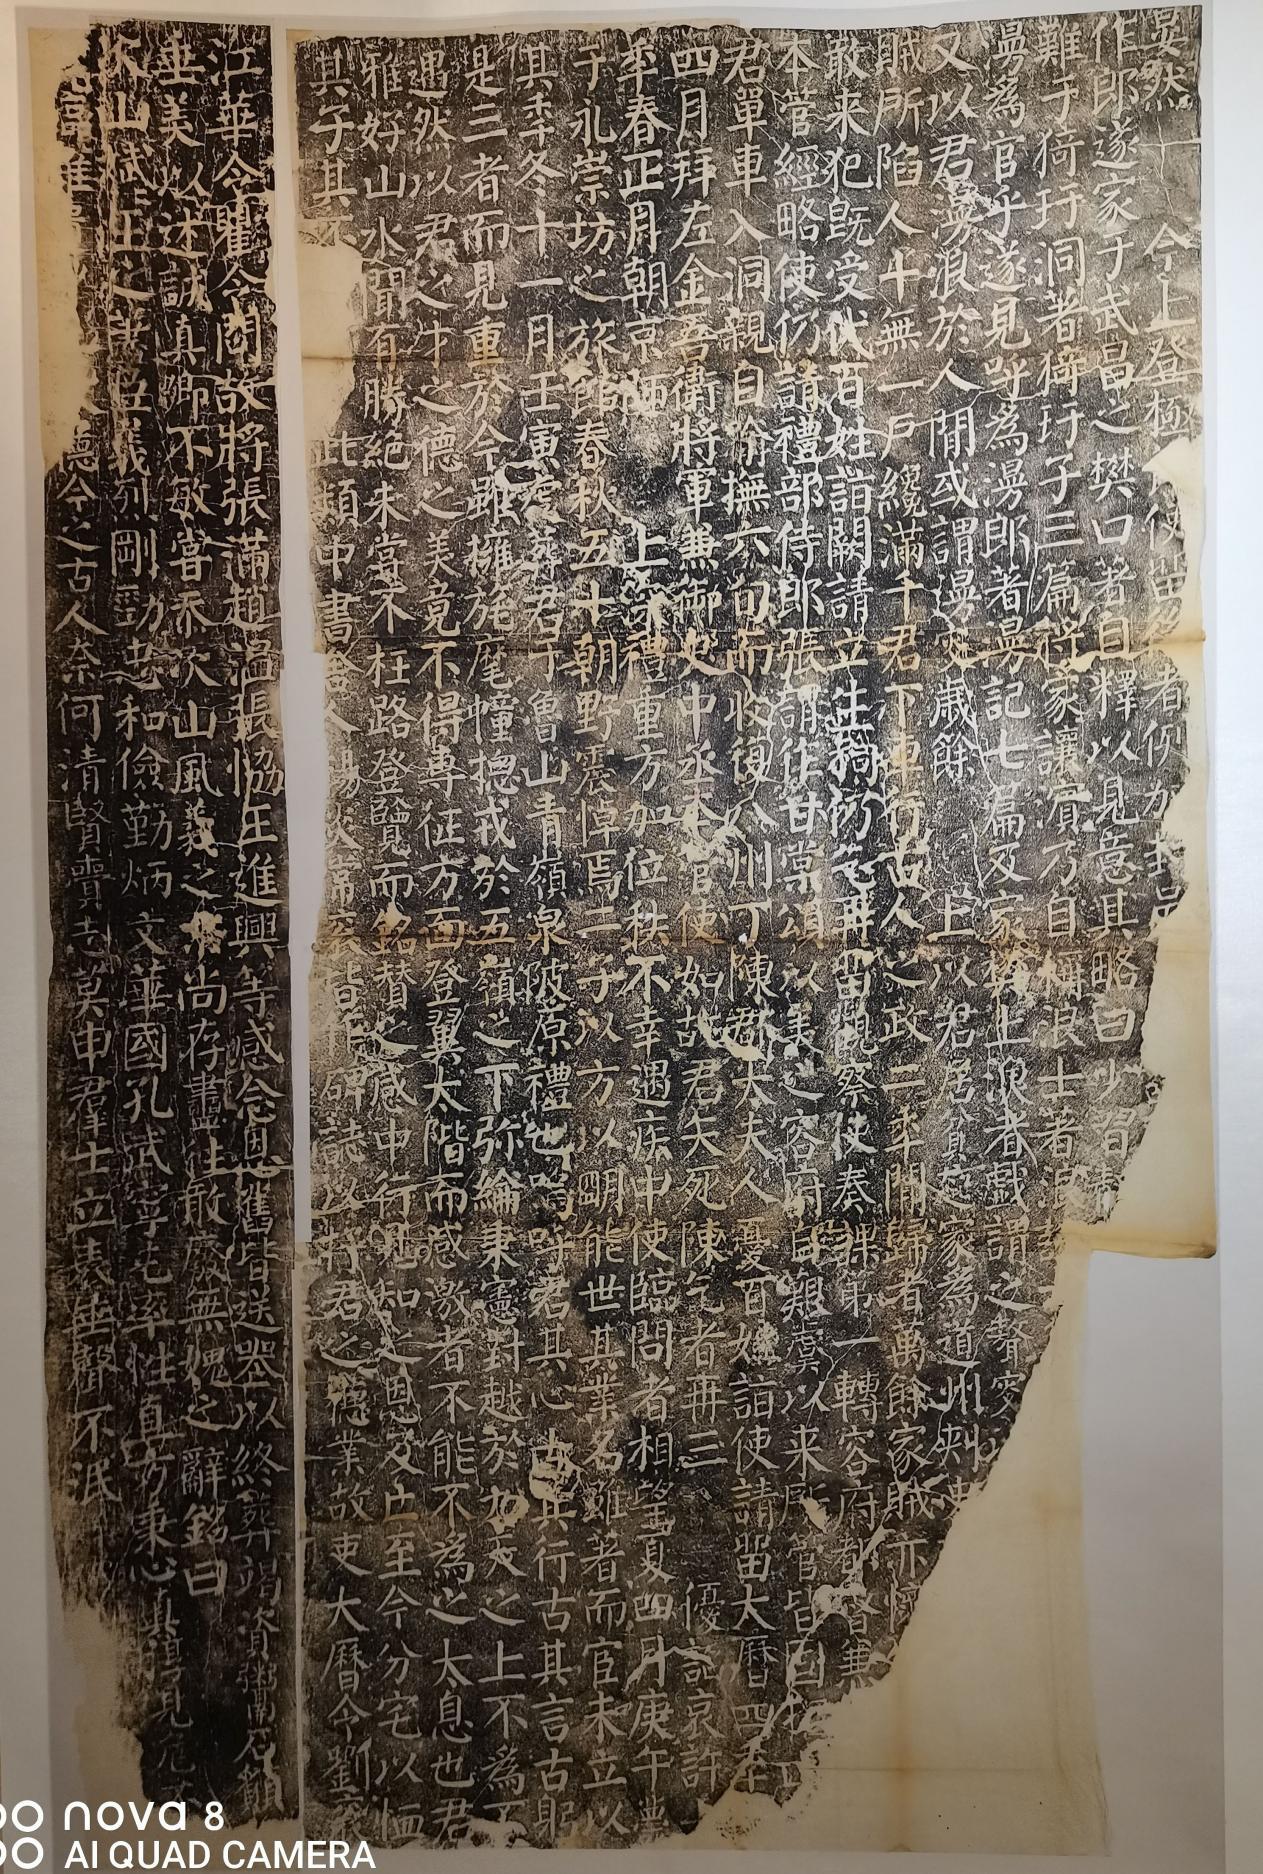 晏然 今上登極 使留 者
作郎遂家于武昌之樊口著自釋以見意其略曰少習
難于猗玗洞著猗玗子三篇將家讓濱乃自稱浪士著浪
漫爲官乎遂見呼爲漫郎著漫記七篇及家 上浪者戲謂之聱
又以君漫浪於人閒或謂漫叟歲餘 上以君居貧起家爲道州刺
賊所陷人十無一戶纔滿千君下車行古人之政二年閒歸者萬餘家賊亦
敢来犯既受代百姓詣闕請立生祠仍乞再留觀察使奏課第一轉容府都督兼
本管經略使仍請禮部侍郎張謂作甘棠頌以美之容府自艱虞以来所管皆固
君單車入洞親自喻撫六旬而收復八州丁陳郡太夫人憂百姓詣使請留大曆四年
四月拜左金吾衛將軍兼御史中丞 管使如故君矢死陳乞者再三 優詔哀許
年春正月朝京師 上深禮重方加位秩不幸遇疾中使臨問者相望夏四月庚午薨
于 崇坊之旅館春秋五十朝野震悼焉二子以方以明能世其業名雖著而官未立以
其年冬十一月壬寅虔葬君于魯山青嶺泉陂原禮也嗚呼君其心古其行古其言古躬
是三者而見重於今雖擁旄麾幢摠戎於五嶺之下弥綸秉憲對越於九天之上不爲不
遇然以君之才之德之美竟不得專征方面登翼太階而感激者不能不爲之太息也君
雅好山水聞有勝絕未嘗不枉路登覽而銘贊之感中行見知之恩及亡至今分宅以恤
其子其 此類中書舍人楊炎常衮皆作碑誌以 將君之德業故吏大曆令劉衮
江華令瞿令問故將張滿趙溫張協王進興等感念恩舊皆送器以終葬竭資鬻石
垂美以述誠真卿不敏嘗忝次山風義之 尚存盡往敢廢無愧之辭銘曰
次山斌斌王之 臣義烈剛勁忠和儉勤炳文華國孔武寧屯率性真方秉心真 見危
德今之古人奈何清賢賷志莫申羣士立表垂聲不泯